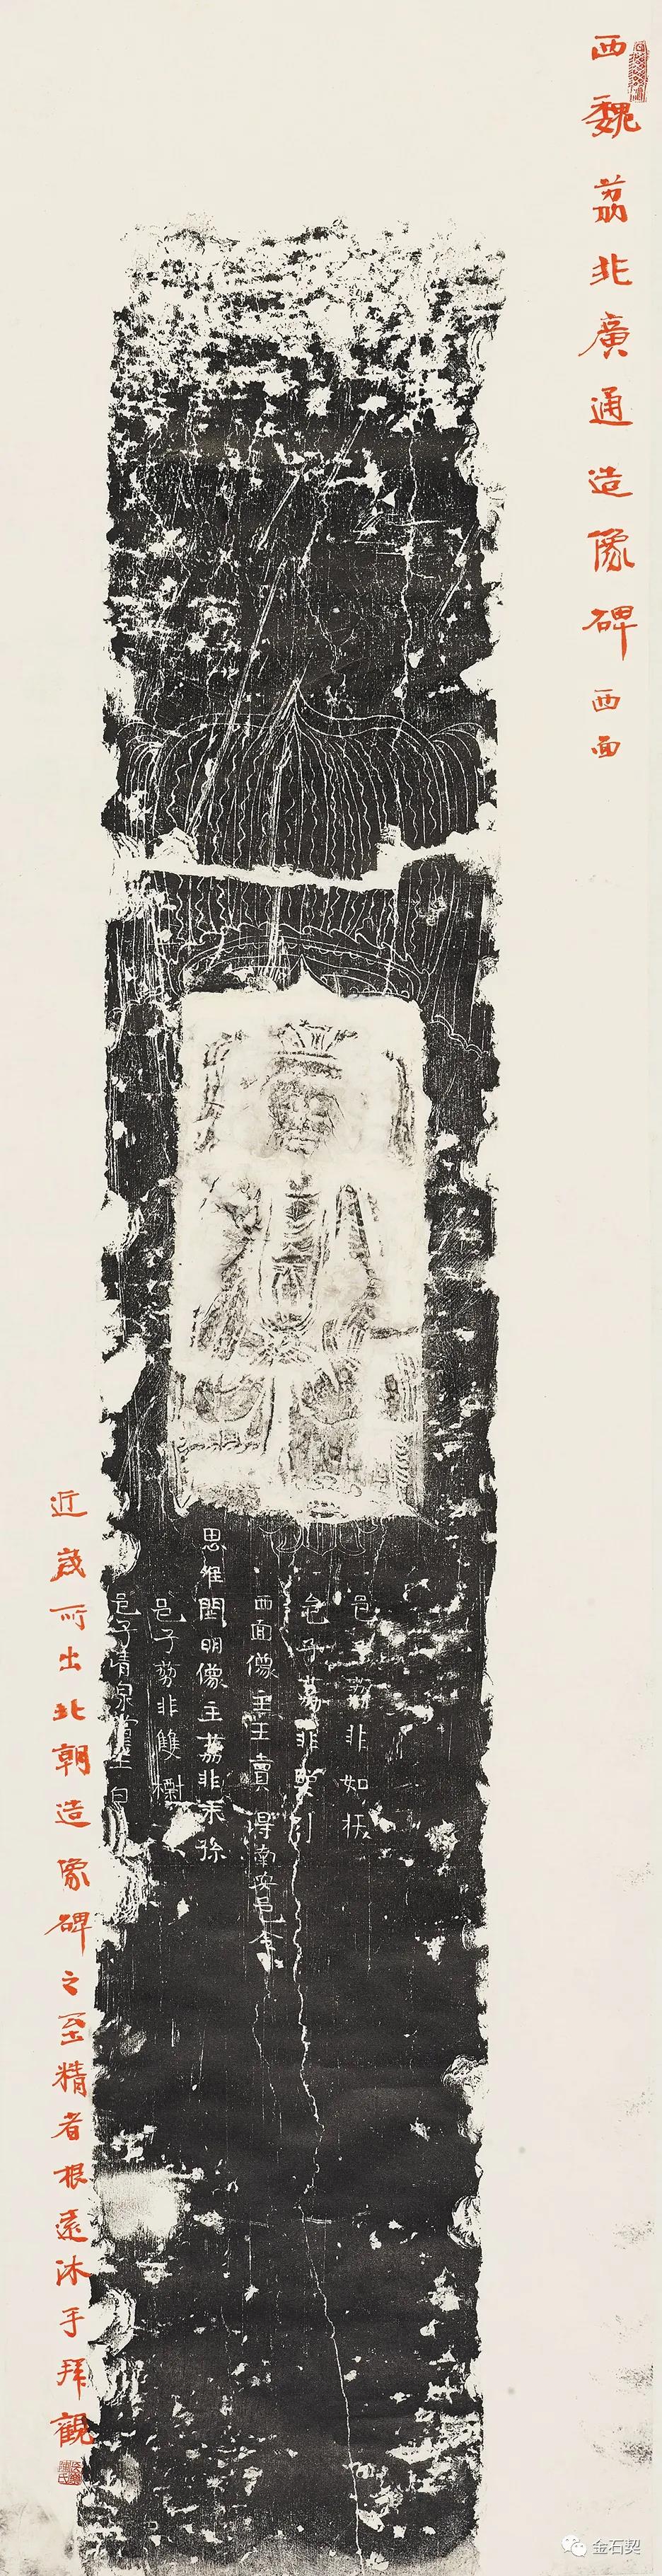 西魏荔非廣通造像碑西面
邑子荔非如
邑子荔非
西面像主王賣得南安邑令
思惟開明像主荔非
邑子荔非雙
邑子清泉
近歲所出北朝造像碑之至精者根遠沐手拜觀
金石契